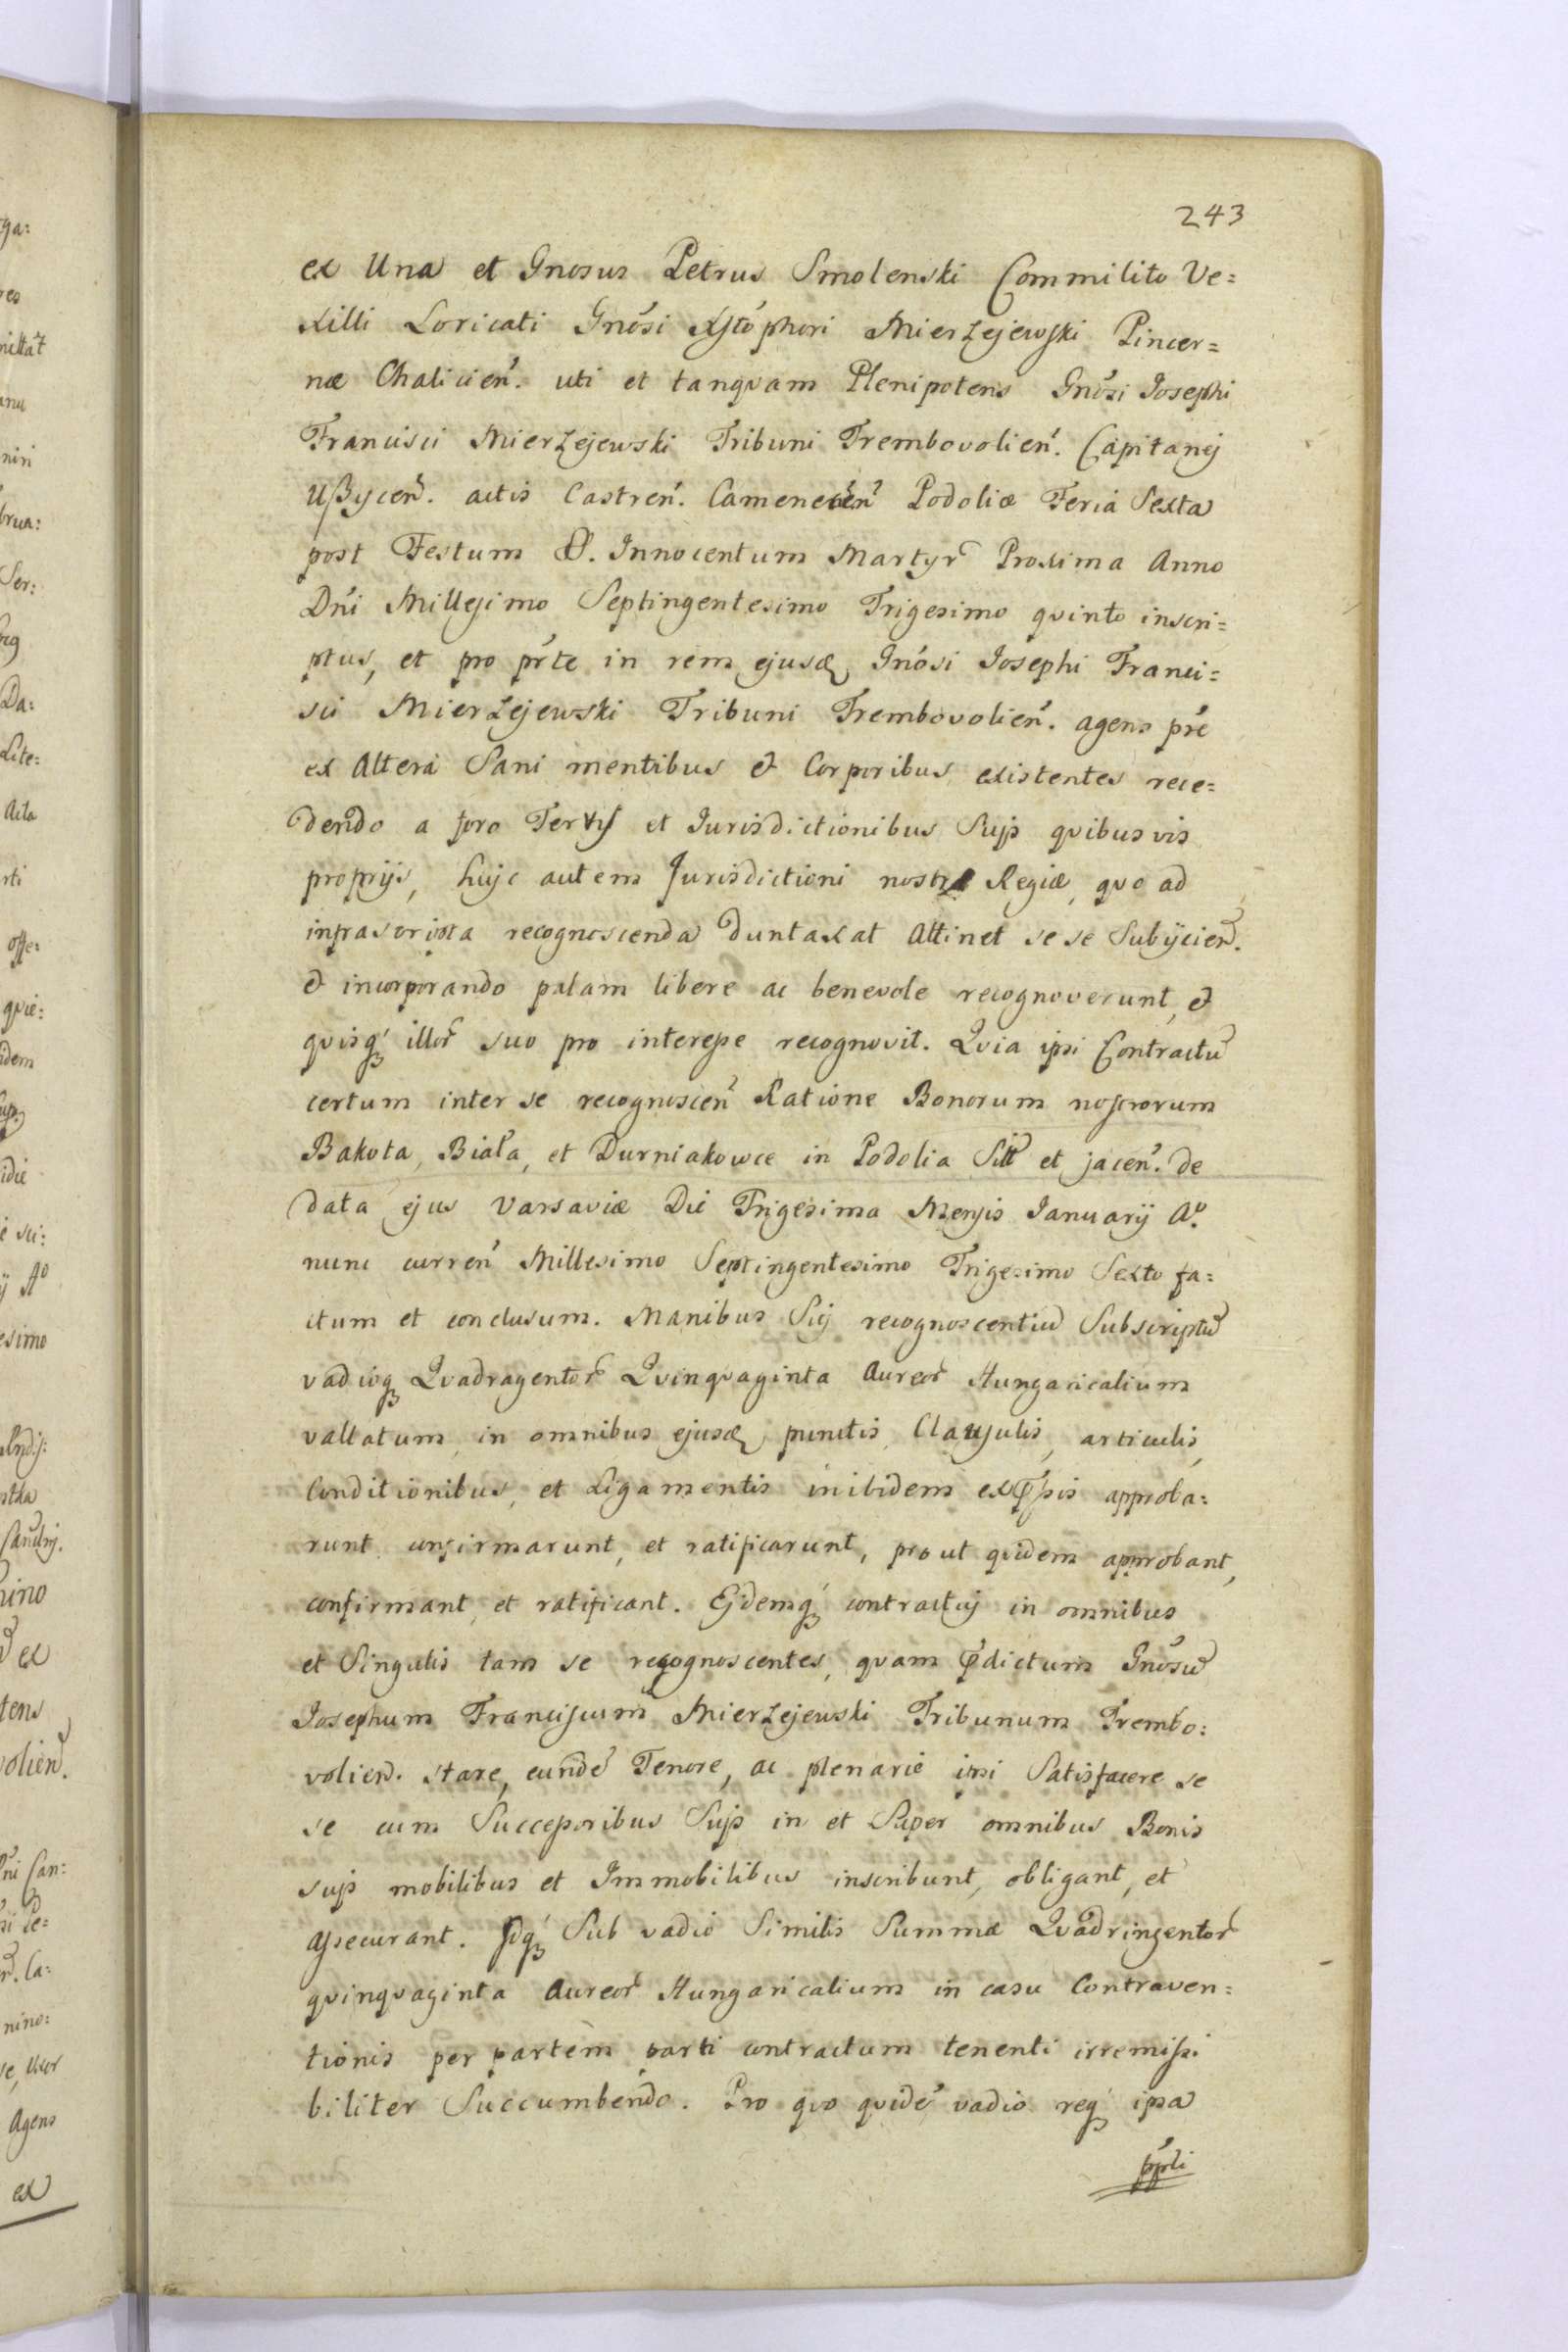 243
ex Una et Gnosus Petrus Smolenski Commilito Ve=
xilli Loricati Gnõsi Xstõphori Mierzejewski Pincer=
næ Chalicień. uti et tanqvam Plenipotens Gnõsi Josephi
Francisci Mierzejewski Tribuni Trembovolień. Capitanej
Ußyceń. actis Castreń. Cameneceń Podoliæ Feria Sexta
post Festum SS. Innocentum Martyr Proxima Anno
Dńi Millesimo Septingentesimo Trigesimo qvinto inscri=
ptus, et pro pŕte in rem ejusd Gnõsi Josephi Franci=
sci Mierzejewski Tribuni Trembovolień. agens pŕe
ex Altera Sani mentibus et Corporibus existentes rece=
dendo a foro et Jurisdictionibus Sujs qvibusvis
proprijs, hujc autem Jurisdictioni nostræ Regiæ, qvo ad
infrascripta recognoscenda duntaxat Attinet se se Subijcień.
et incorporando palam libere ac benevole recognoverunt, et
qvisq illor suo pro interesse recognovit. Qvia ipsi Contractũ
certum inter se recognosceń Ratione Bonorum nostrorum
Bakota, Biała, et Durniakowce in Podolia Sitt et jaceń. de
data ejus Varsaviæ Die Trigesima Mensis Januarij Aº.
nunc curreń Millesimo Septingentesimo Trigesimo Sexto fa=
ctum et conclusum. Manibus recognoscentiũ Subscriptũ
vadioq Qvadragentor Qvinqvaginta Aureor Hungaricalium
vallatum, in omnibus ejusd punctis, Clausulis, articulis,
Conditionibus, et Ligamentis inibidem expssis approba=
runt confirmarunt, et ratificarunt, prout qvidem approbant,
confirmant, et ratificant. Ejdemq contractuj in omnibus
et Singulis tam se recognoscentes, qvam pdictum Gnõsũ
Josephum Franciscum Mierzejewski Tribunum Trembo=
volień. stare, eundẽ Tenore, ac plenarie ipsi Satisfacere se
se cum Successoribus Sujs in et Super omnibus Bonis
sujs mobilibus et Immobilibus inscribunt, obligant, et
assecurant. Idq Sub vadio Similis Summæ Qvadringentor
qvinqvaginta Aureor Hungaricalium in casu Contraven=
tionis per partem parti contractum tenenti irremissi
biliter Succumbendo. Pro qvo qvidẽ vadio req ipsa
ppli